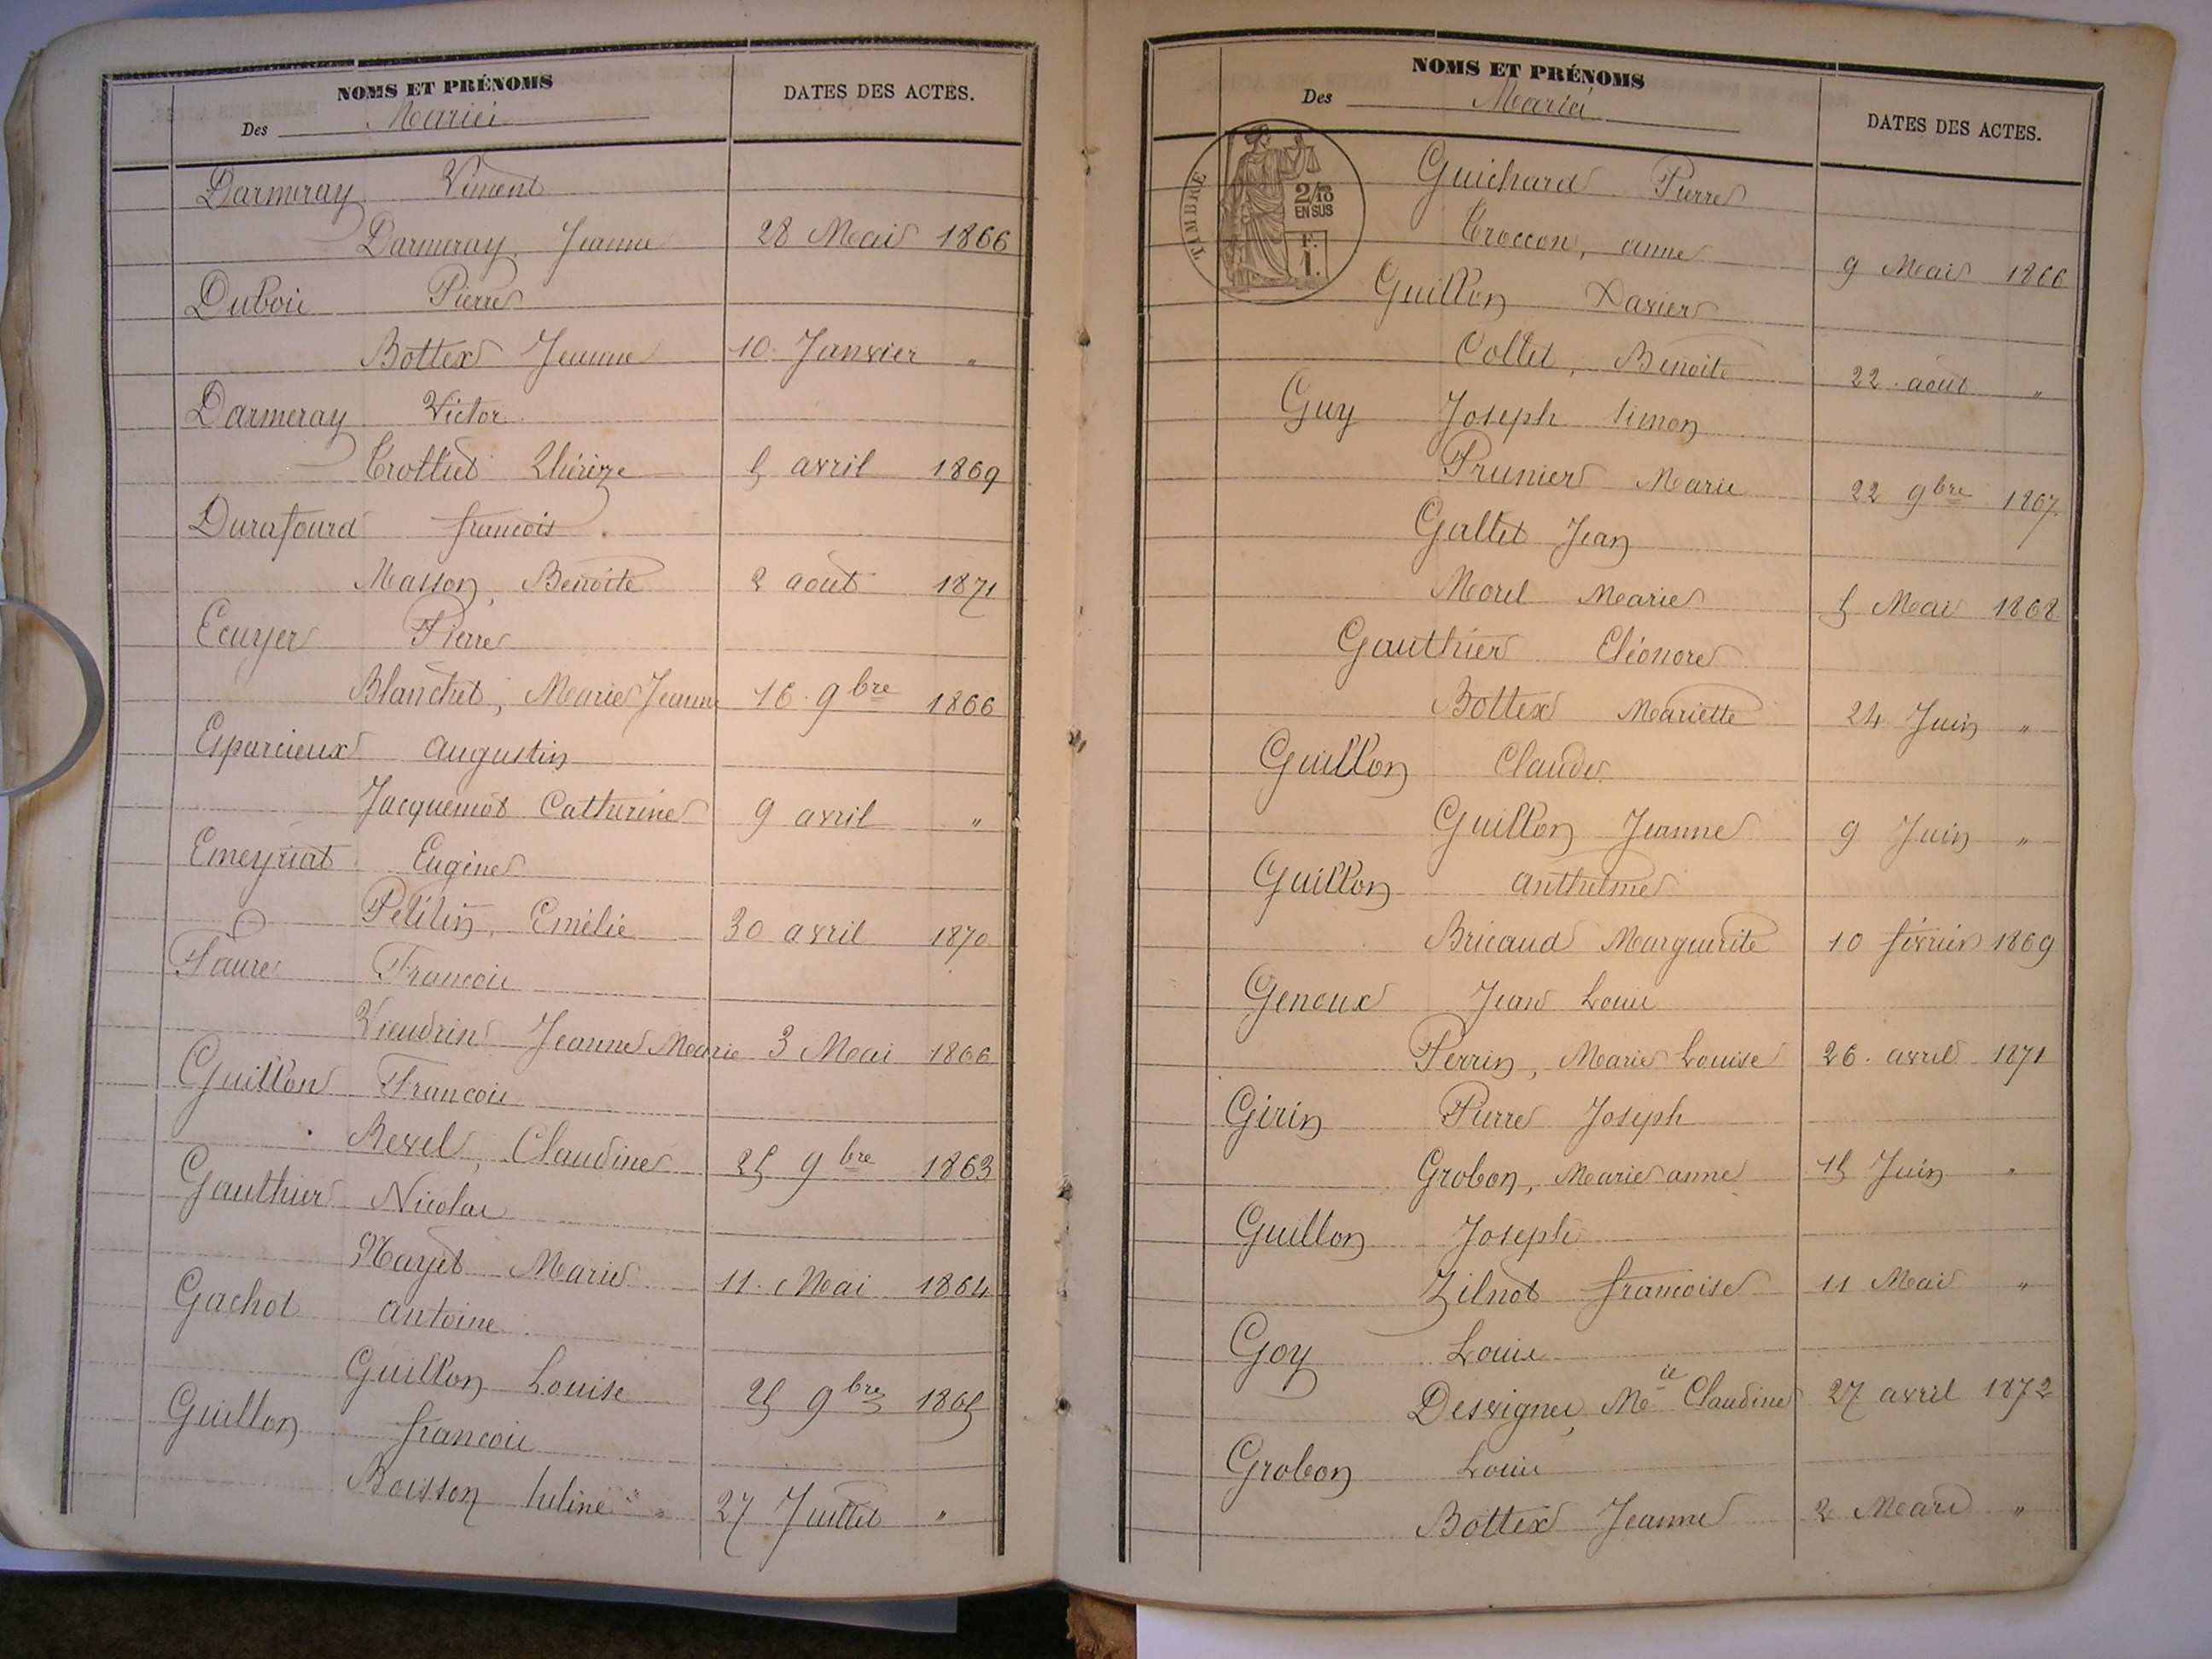 NOMS ET PRÉNOMS
Des Mariés
DATES DES ACTES.
Darmeray Vincent
Darmeray, Jeanne 28 Mars 1866
Dubois Pierre
Bottex Jeanne 10 Janvier "
Darmeray Victor
Trolliet Thérèze 5 avril 1869
Durafourd francois
Masson, Benoite 2 aout 1871
Ecuyer Pierre
Blanchet, Marie Jeanne 16 9bre 1866
Esparcieux augustin
Jacquemot Catherine 9 avril "
Emeyriat Eugène
Petitin, Emélie 30 avril 1870
Faure Francois
Vieudrin Jeanne Marie 3 Mai 1866
Guillon Francois
Revel, Claudine 25 9bre 1863
Gauthier Nicolas
Mayet Marie 11 Mai 1864
Gachot antoine
Guillon Louise 25 9bre 1865
Guillon francois
Boisson 27 Juillet "
NOMS ET PRÉNOMS
Des Mariés
DATES DES ACTES.
TIMBRE
2/10
EN SUS
F.
1.
Guichard Pierre
Croccon, anne 9 Mars 1866
Guillon Xavier
Collet, Benoite 22 aout "
Guy Joseph Simon
Prunier Marie 22 9bre 1867
Gallet Jean
Morel Marie 5 Mai 1868
Gauthier Eléonore
Bottex Mariette 24 Juin "
Guillon Claude
Guillon Jeanne 9 Juin "
Guillon anthelme
Bricaud Marguerite 10 février 1869
Genoux Jean Louis
Perrin, Marie Louise 26 avril 1871
Girin Pierre Joseph
Grobon, Marie anne 15 Juin "
Guillon Joseph
Zilnot francoise 11 Mai "
Goy Louis
Desvignes, Mie Claudine 27 avril 1872
Grobon Louis
Bottex Jeanne 2 Mars "